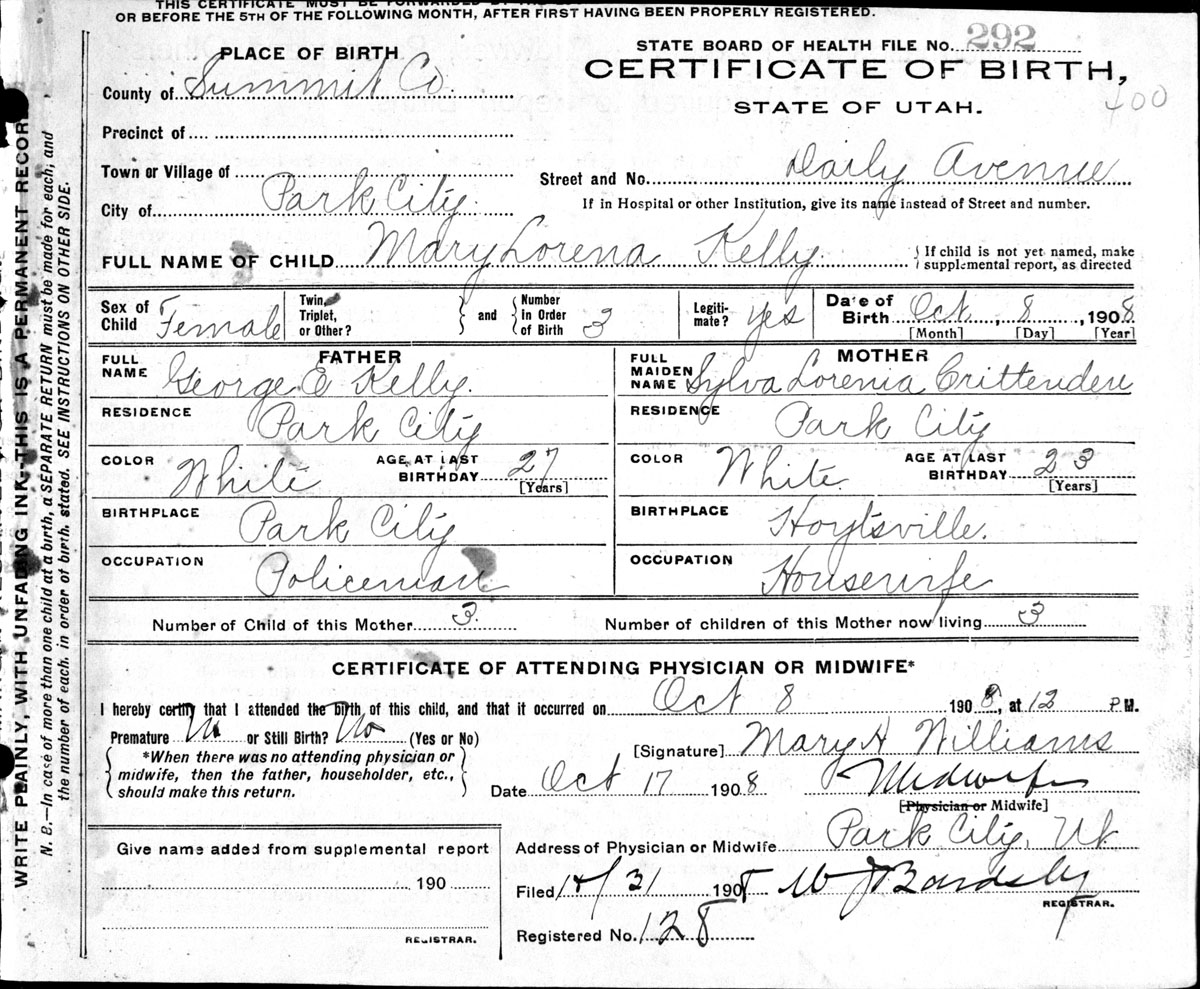 THIS CERTIFICATE MUST BE FORWARDED
OR BEFORE THE 5TH OF THE FOLLOWING MONTH, AFTER FIRST HAVING BEEN PROPERLY REGISTERED.
STATE BOARD OF HEALTH FILE No. 292
CERTIFICATE OF BIRTH,
STATE OF UTAH.
400
PLACE OF BIRTH
County of Summit Co.
Precinct of
Town or Village of
City of Park City.
Street and No. Daily Avenue
If in Hospital or other Institution, give its name instead of Street and number.
FULL NAME OF CHILD Mary Lorena Kelly.
If child is not yet named, make
supplemental report, as directed
Sex of Child Female
Twin, Triplet, or Other?
and
Number in Order of Birth 3
Legiti-mate? yes
Date of Birth Oct, 8, 1908
[Month] [Day] [Year]
FATHER
FULL NAME George E Kelly.
RESIDENCE Park City
COLOR White
AGE AT LAST BIRTHDAY 27
[Years]
BIRTHPLACE Park City
OCCUPATION Policeman
MOTHER
FULL MAIDEN NAME Sylva Lorenia Crittenden
RESIDENCE Park City
COLOR White.
AGE AT LAST BIRTHDAY 23
[Years]
BIRTHPLACE Hoytsville.
OCCUPATION Housewife
Number of Child of this Mother 3.
Number of children of this Mother now living 3
CERTIFICATE OF ATTENDING PHYSICIAN OR MIDWIFE*
I hereby certify that I attended the birth of this child, and that it occurred on Oct 8 1908, at 12 P.M.
Premature No or Still Birth? No (Yes or No)
*When there was no attending physician or
midwife, then the father, householder, etc.,
should make this return.
[Signature] Mary H Williams
Date Oct 17 1908
Midwife
[Physician or Midwife]
Address of Physician or Midwife Park City, Ut.
Give name added from supplemental report
190
REGISTRAR.
Filed 1908 W J Bardsley
REGISTRAR.
Registered No. 128
WRITE PLAINLY, WITH UNFADING INK—THIS IS A PERMANENT RECORD
N. B.—In case of more than one child at a birth, a SEPARATE RETURN must be made for each, and
the number of each, in order of birth, stated. SEE INSTRUCTIONS ON OTHER SIDE.